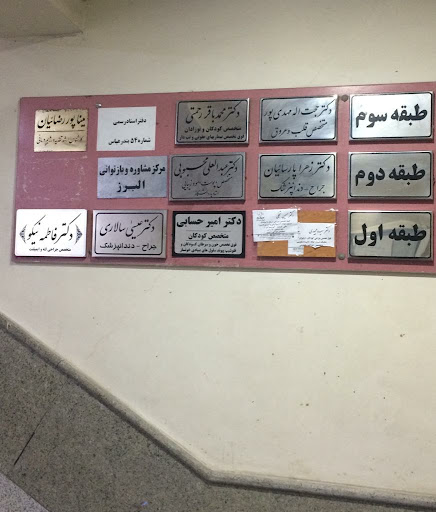 طبقه سوم
دکتر حجت اله مهدی پور
متخصص قلب و عروق
دکتر محمد باقر رحمتی
متخصص کودکان و نوزادان
دفتر اسناد رسمی
شماره ۵۴ بندرعباس
مینا پور رضائیان
طبقه دوم
دکتر زهرا پارسائیان
جراح - دندانپزشک
دکتر عبدالعلی محبوبی
مرکز مشاوره و بازتوانی
البرز
طبقه اول
دکتر امیر حسابی
متخصص کودکان
فوق تخصص خون و سرطان کودکان و
دکتر عیسی سالاری
جراح - دندانپزشک
دکتر فاطمه نیکو
متخصص جراحی لثه و ایمپلنت